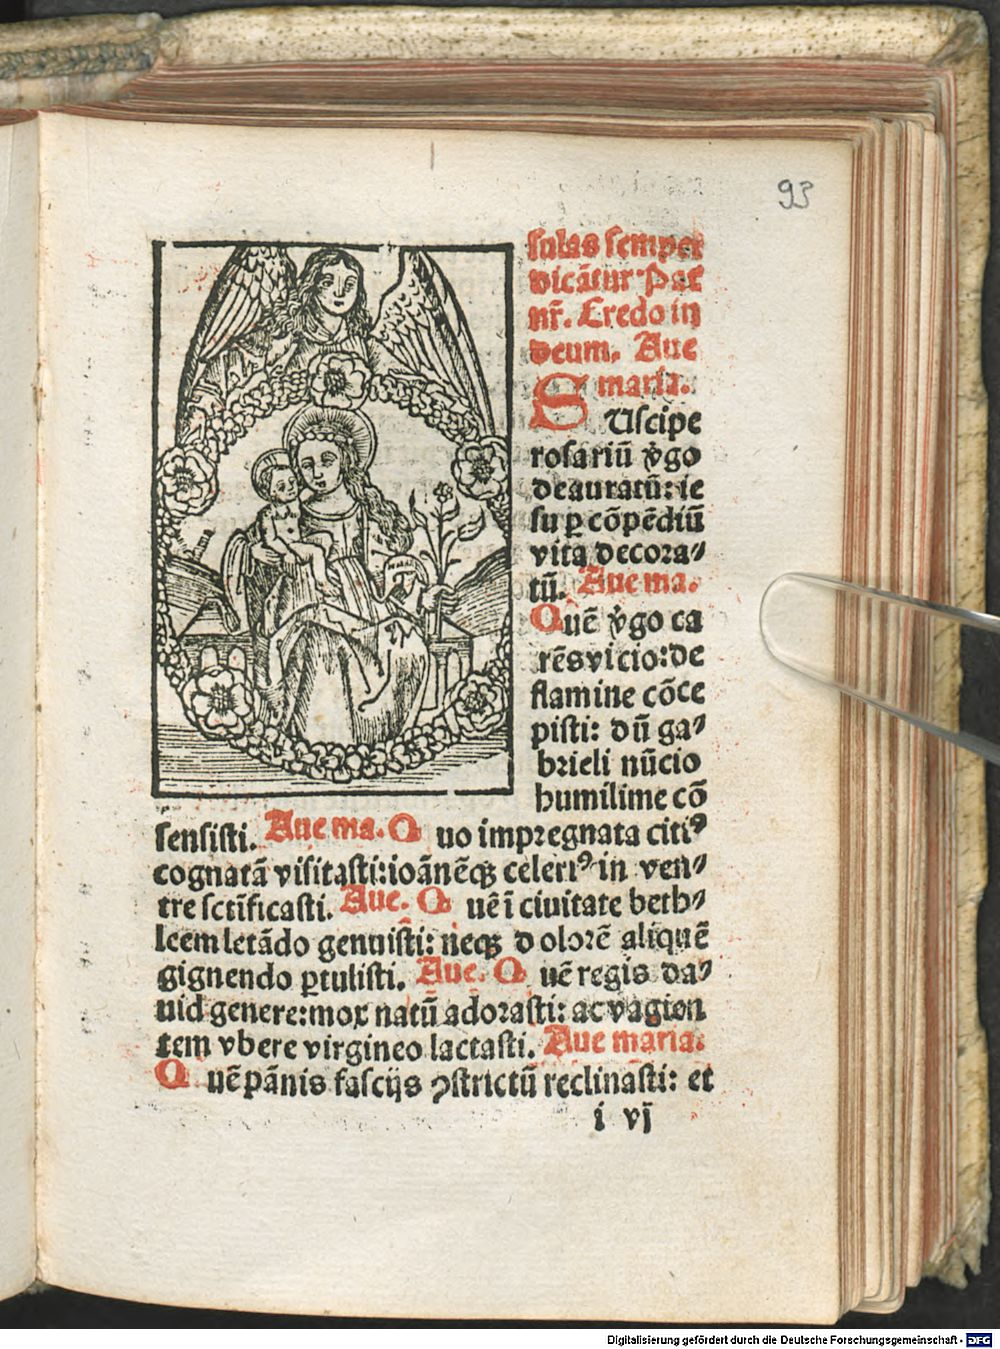 93
sulas semper
vicātur Pat̄
nr̄. Credo in
deum. Aue
maria.
SUscipe
rosariū v̄go
deauratū: ie
su ꝑ cōpēdiū
vita decora⸗
tū. Aue ma.
Quē v̄go ca
rēs vicio: de
flamine cōce
pisti: dū ga⸗
brieli nūcio
humilime cō
sensisti. Aue ma. Quo impregnata citiꝰ
cognatā visitasti: ioānēqꝫ celeriꝰ in ven⸗
tre sctīficasti. Aue. Quē ī ciuitate beth⸗
leem letādo genuisti: neqꝫ dolorē aliquē
gignendo ꝑtulisti. Aue. Quē regis da⸗
uid genere: mox natū adorasti: ac vagien
tem vbere virgineo lactasti. Aue maria.
Quē pānis fascijs ꝯstrictū reclinasti: et
i vj
Digitalisierung gefördert durch die Deutsche Forschungsgemeinschaft - DFG